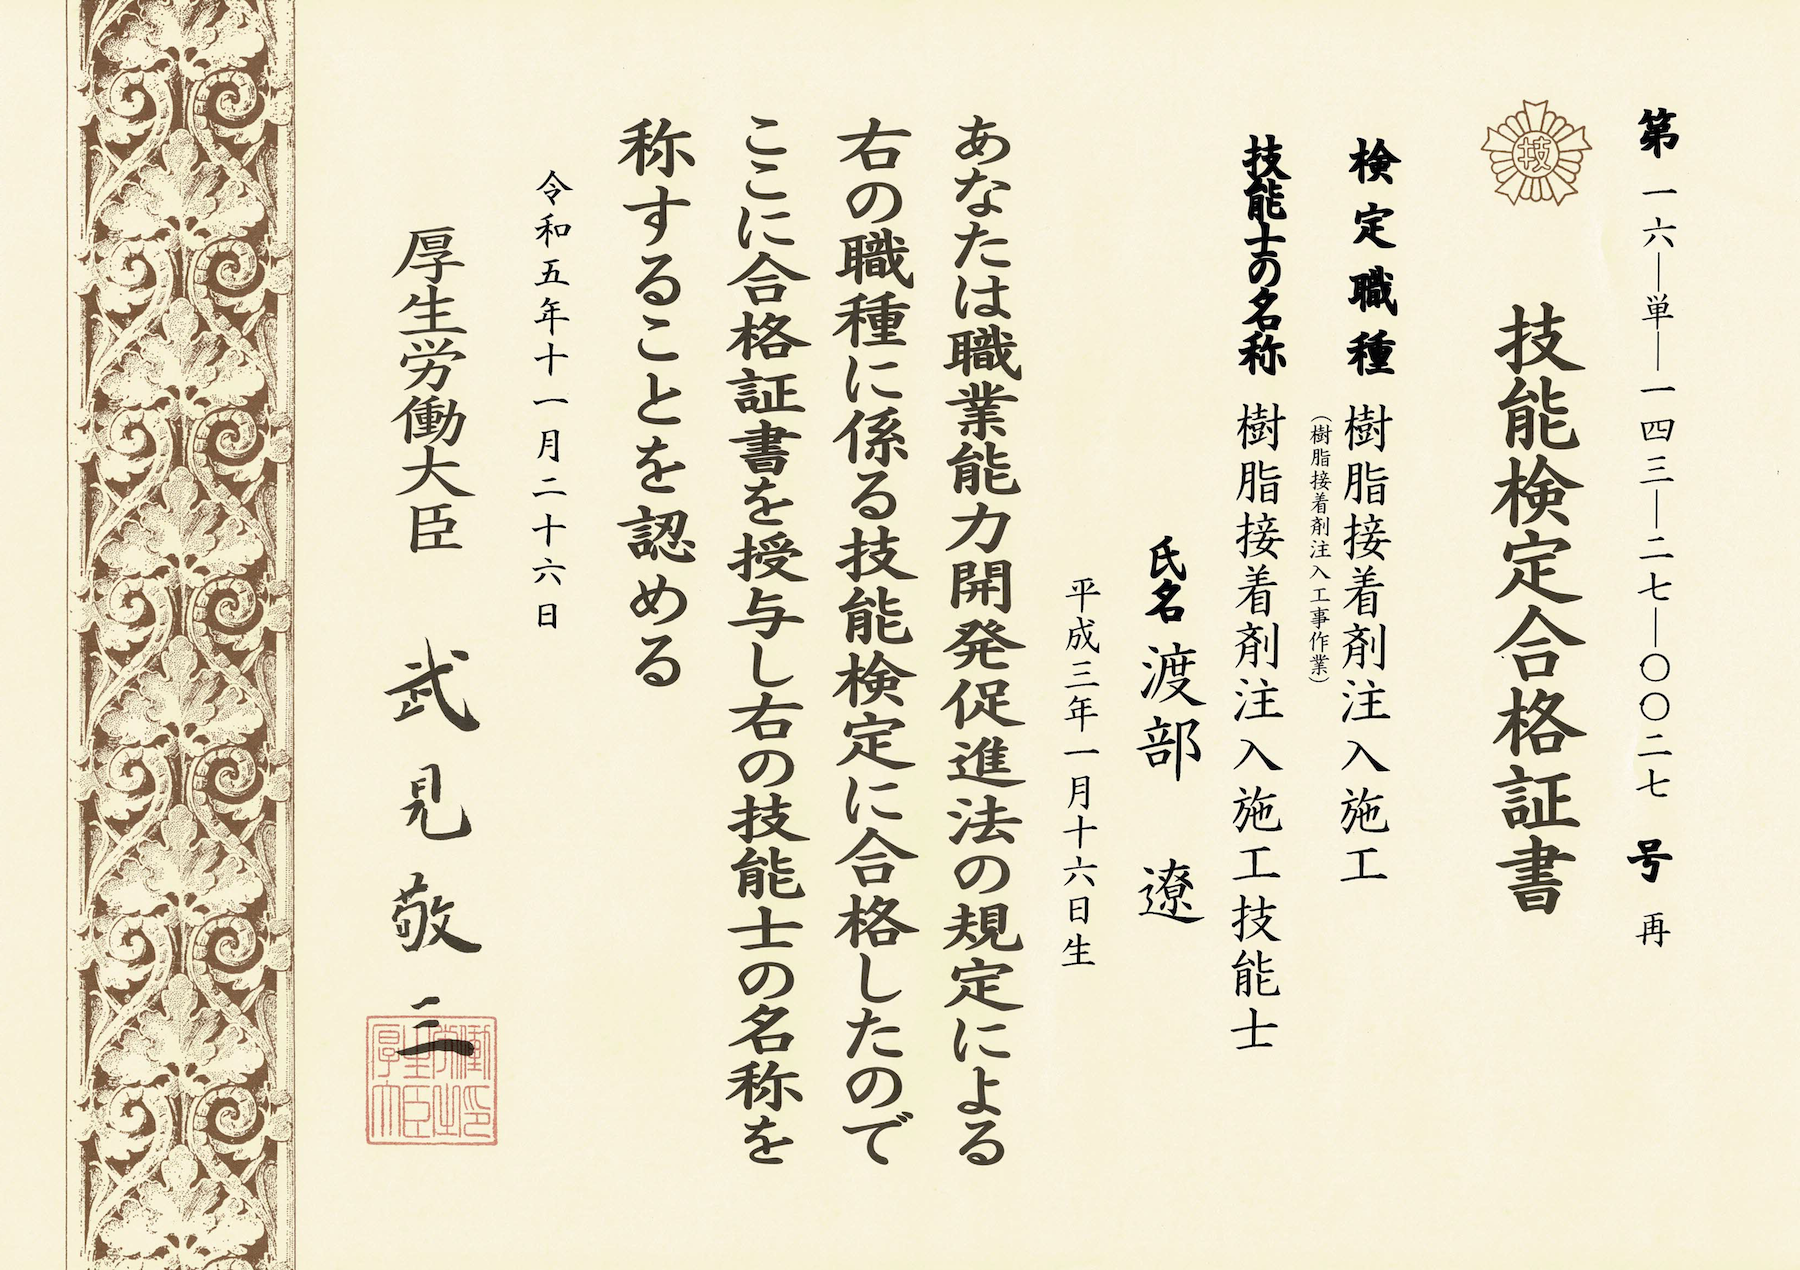 第一六―単―一四三―二七―〇〇二七号 再
技
技能検定合格証書
検定職種 樹脂接着剤注入施工
（樹脂接着剤注入工事作業）
技能士の名称 樹脂接着剤注入施工技能士
氏名 渡部 遼
平成三年一月十六日生
あなたは職業能力開発促進法の規定による
右の職種に係る技能検定に合格したので
ここに合格証書を授与し右の技能士の名称を
称することを認める
令和五年十一月二十六日
厚生労働大臣 武見敬三
厚生労働大臣之印